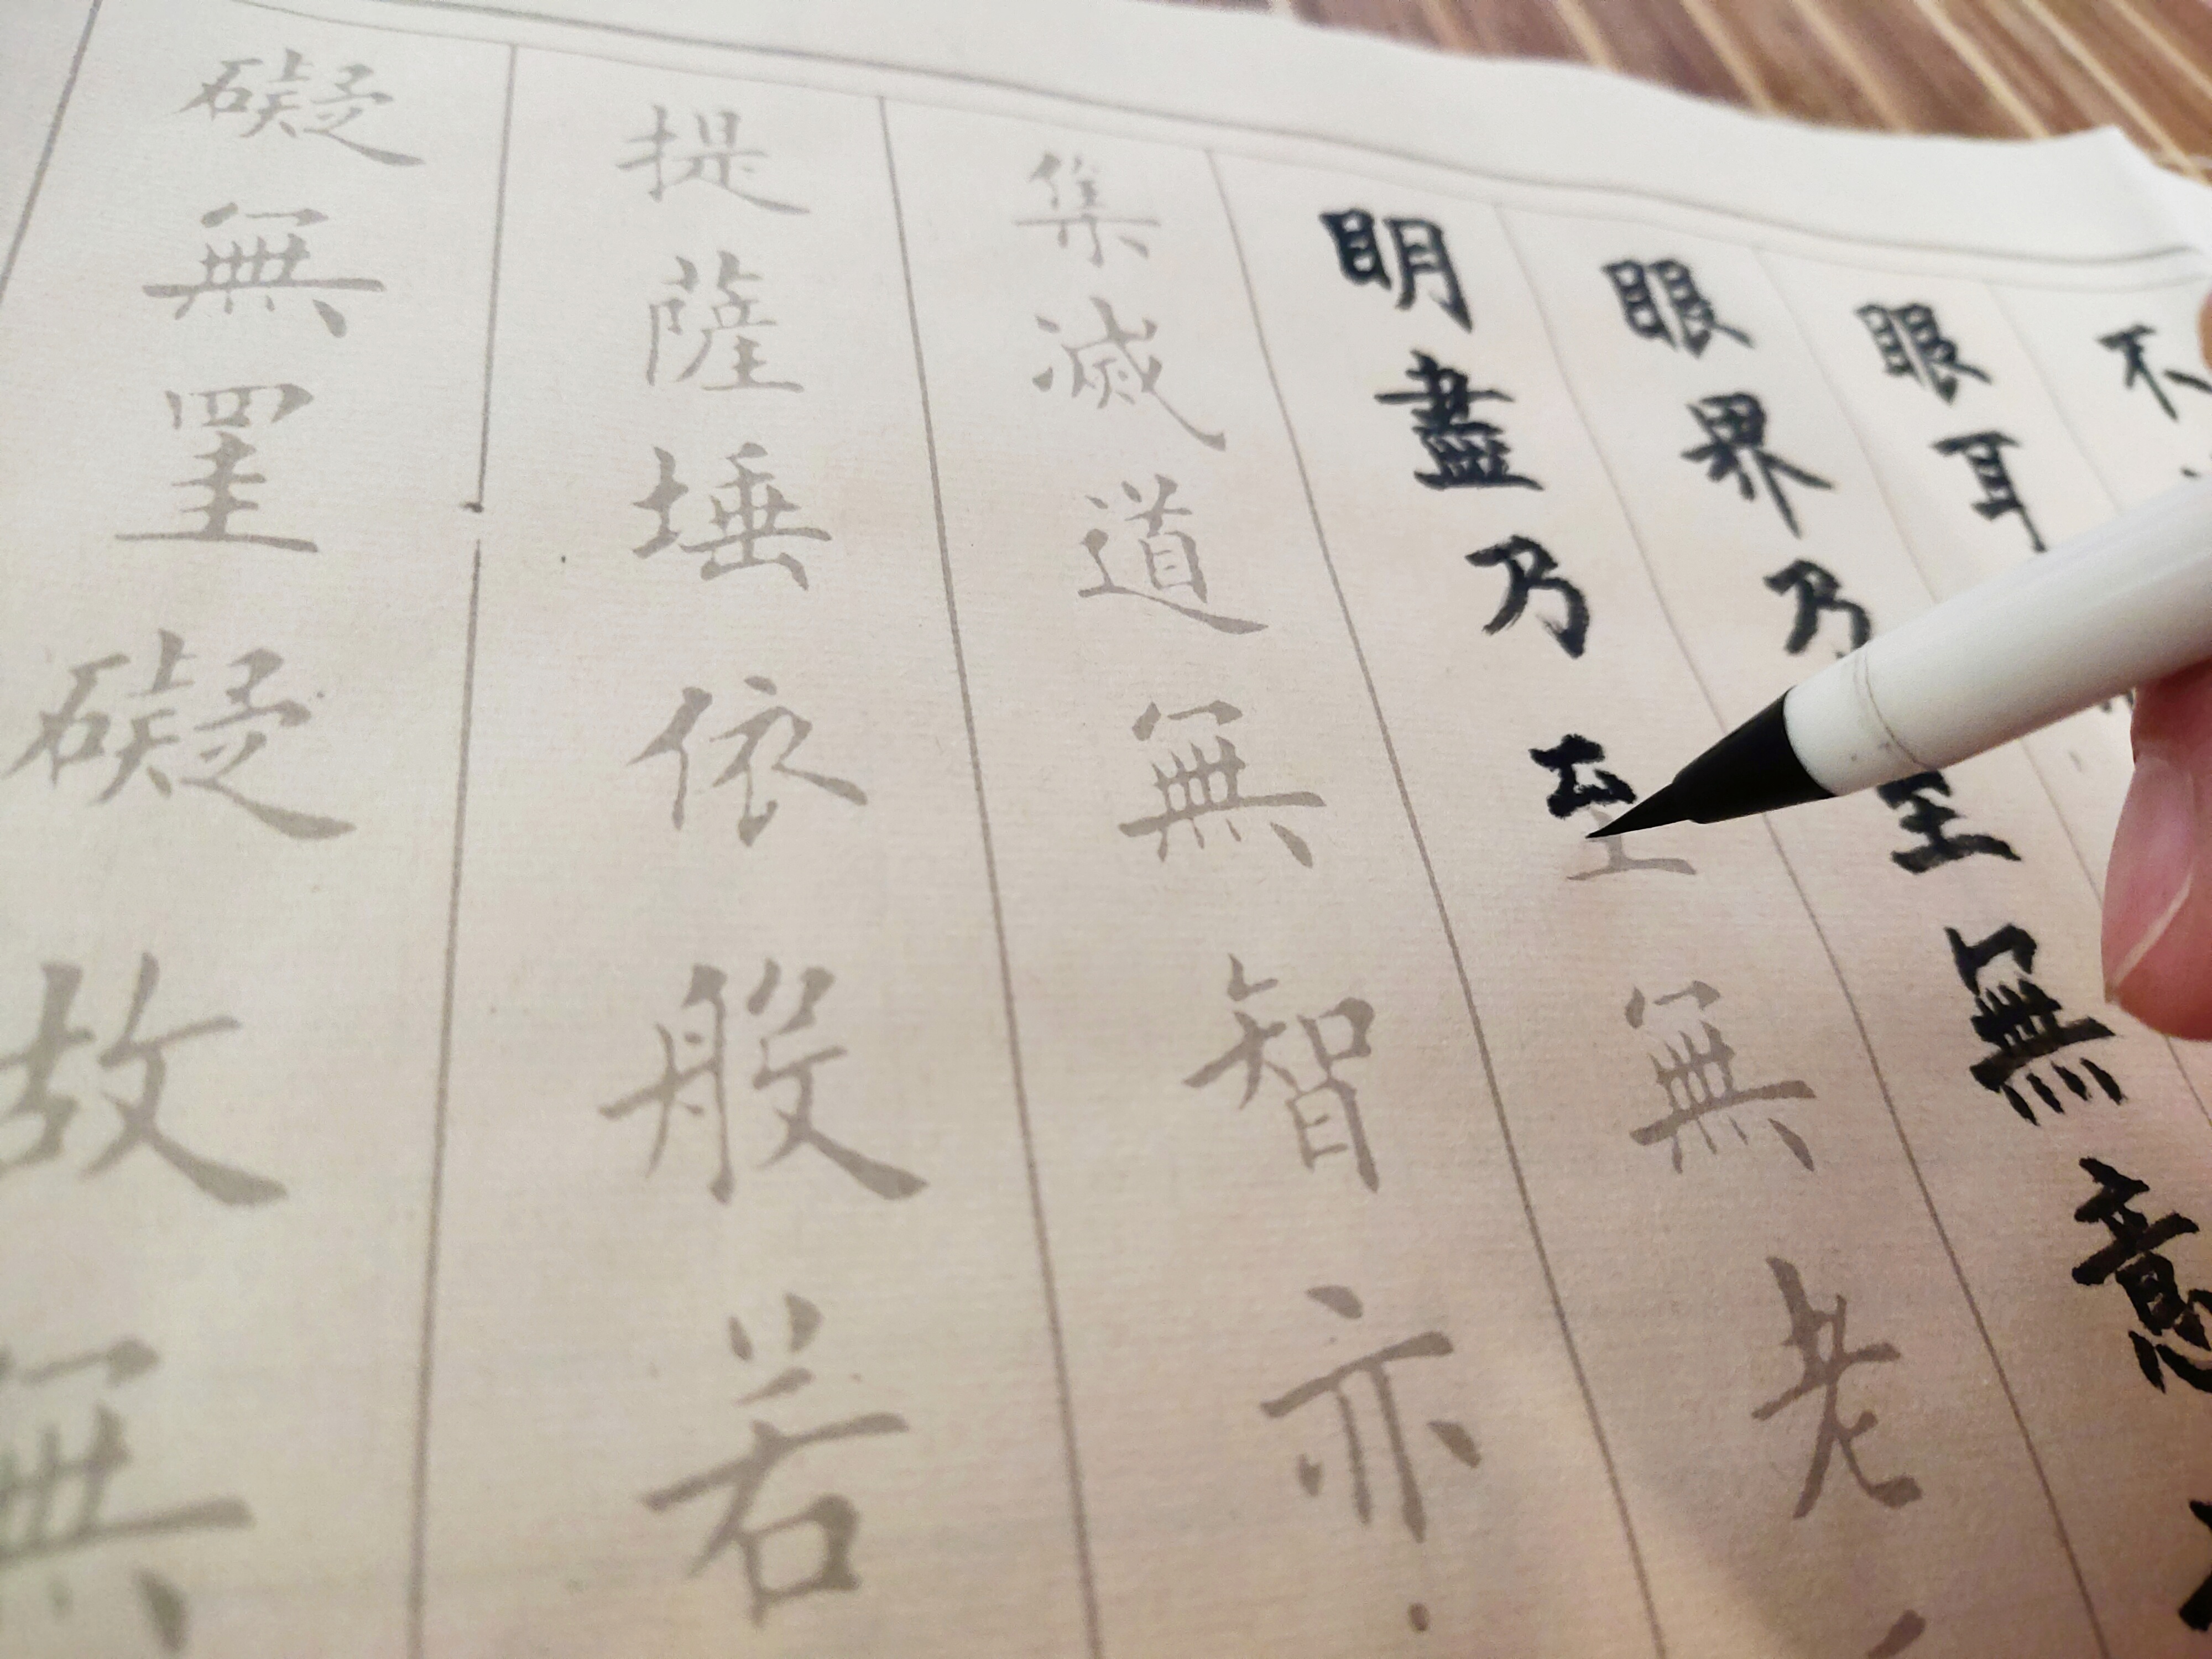 不
眼耳
眼界乃至無意
明盡乃至無老
集滅道無智亦
提薩埵依般若
礙無罣礙故無